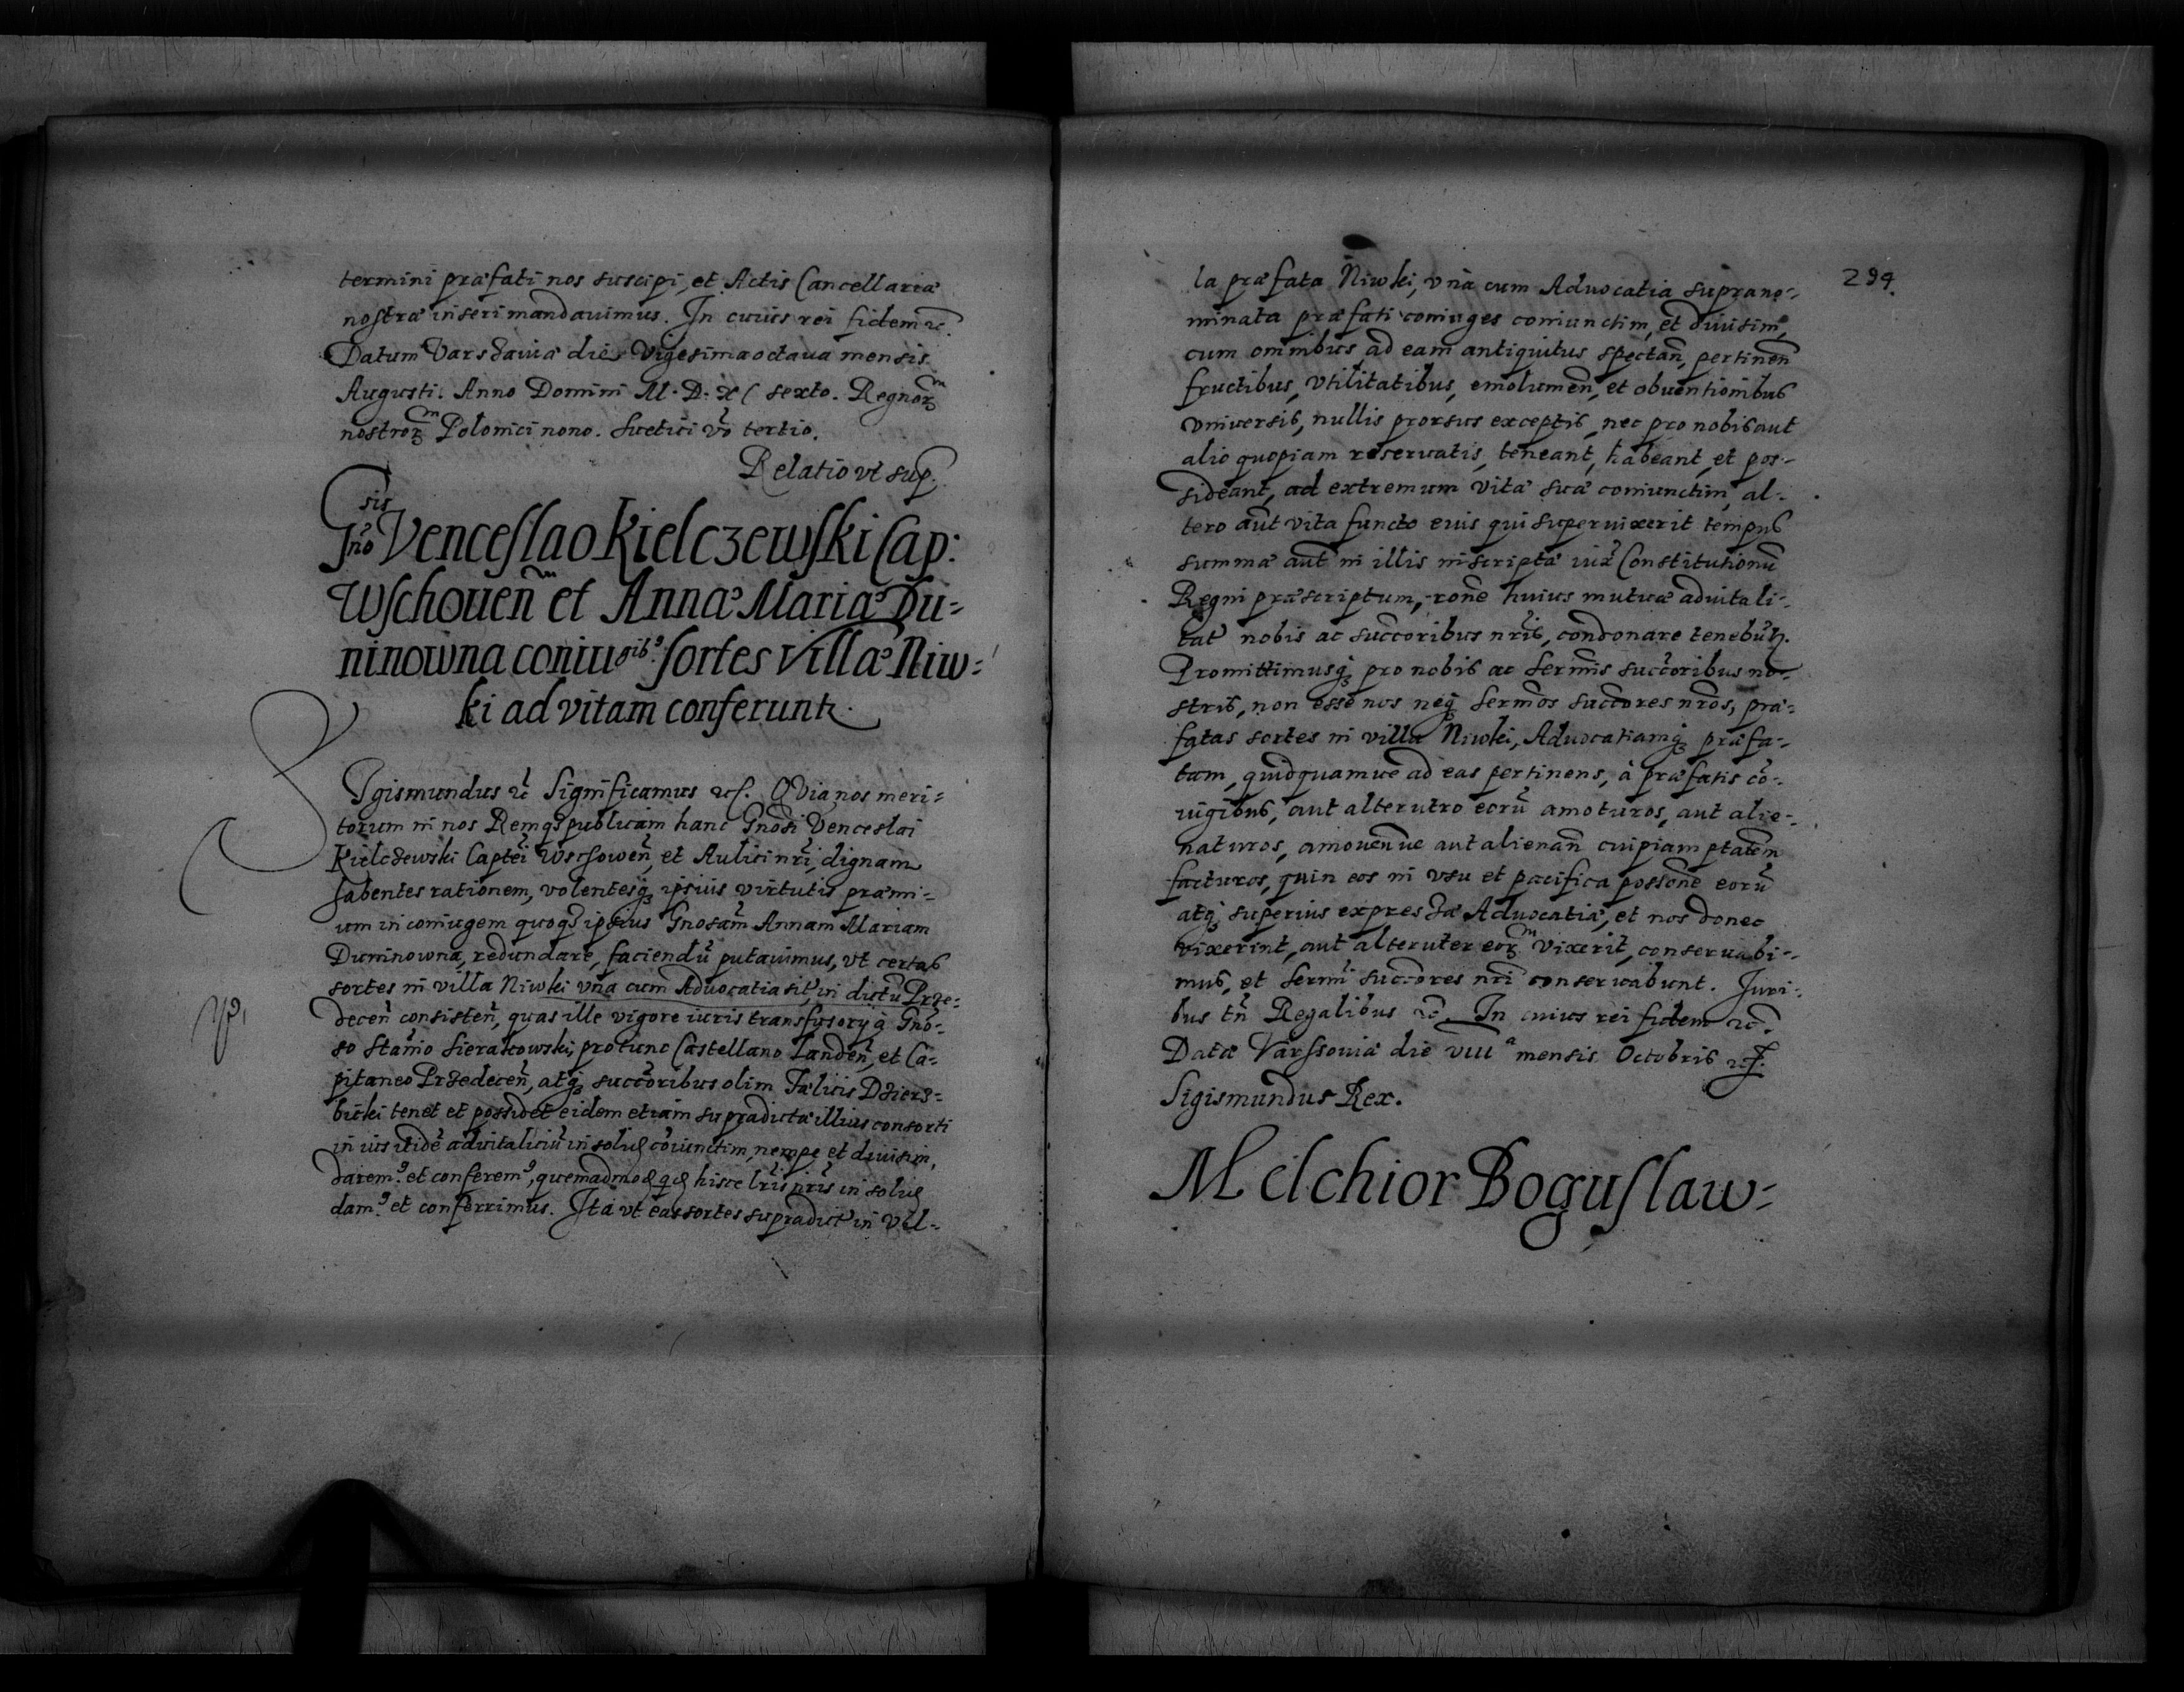 termini præfati nos suscipi, et Actis Cancellariæ
nostræ inseri mandavimus. In cuius rei fidem &c.
Datum Varsaviæ die Vigesimaoctava mensis
Augusti. Anno Domini M. D. XC sexto. Regnorm
nostrorm Polonici nono. Suetici vo tertio.
Relatio vt sup.
Gnosis Venceslao Kielczewski Cap:
Wschouen et Annæ Mariæ Du-
ninowna coniugibs sortes Villæ Niw-
ki ad vitam conferuntr.
Sigismundus &c Significamus &c. Quia nos meri-
torum in nos Remqȝ publicam hanc Gnosi Venceslai
Kielczewski Captei Wschowen, et Aulici nri, dignam
habentes rationem, volentesqȝ ipsius virtutis præmi-
um in coniugem quoqȝ ipsius Gnosam Annam Mariam
Duninowna, redundare, faciendu putavimus, vt certas
sortes in villa Niwki vna cum Advocatia sit in dictu Prze-
decen consisten, quas ille vigore iuris transfusorij à Gno-
so Stanio Sierakowski, protunc Castellano Landen, et Ca-
pitaneo Przedecen, atqȝ succoribus olim Fælicis Dzierz-
bicki tenet et possidet eidem etiam supradictæ illius consorti
in ius itide advitaliciu in solid coiunctim, nempe et divisim,
daremȝ et conferemȝ, quemadmod qd hisce lris nris in solid
damȝ et conferrimus. Ita vt eas sortes supradict in vil-
294.
la præfata Niwki, vna cum Advocatia suprano-
minata præfati coniuges coniunctim, et divisim,
cum omnibus ad eam antiquitus spectan, pertinen
fructibus, vtilitatibus, emolumen, et obventionibus
vniversis, nullis prorsus exceptis, nec pro nobis aut
alio quopiam reservatis, teneant, habeant, et pos-
sideant, ad extremum vitæ suæ coniunctim, al-
tero aut vita functo euis qui supervixerit tempus
summæ aut in illis inscriptæ iux Constitutionu
Regni præscriptum, rone huius mutuæ advitali-
tat nobis ac succoribus nris, condonare tenebutr.
Promittimusqȝ pro nobis ac Sermis succoribus no-
stris, non esse nos neqȝ Sermos succores nros, præ-
fatas sortes in villa Niwki, Advocatiamqȝ præfa-
tam, quidquamve ad eas pertinens, à præfatis co-
iugibus, aut alterutro eoru amoturos, aut alie-
naturos, amovenve aut alienan cuipiam ptatem
facturos, quin eos in vsu et pacifica possone eoru
atqȝ superius expressæ Advocatiæ, et nos donec
vixerint, aut alteruter eorm vixerit, conservabi-
mus, et Sermi succores nri conservabunt. Iuri-
bus tn Regalibus &c. In cuius rei fidem &c.
Datæ Varssoviæ die VIII a mensis Octobris &c.
Sigismundus Rex.
Melchior Boguslaw-